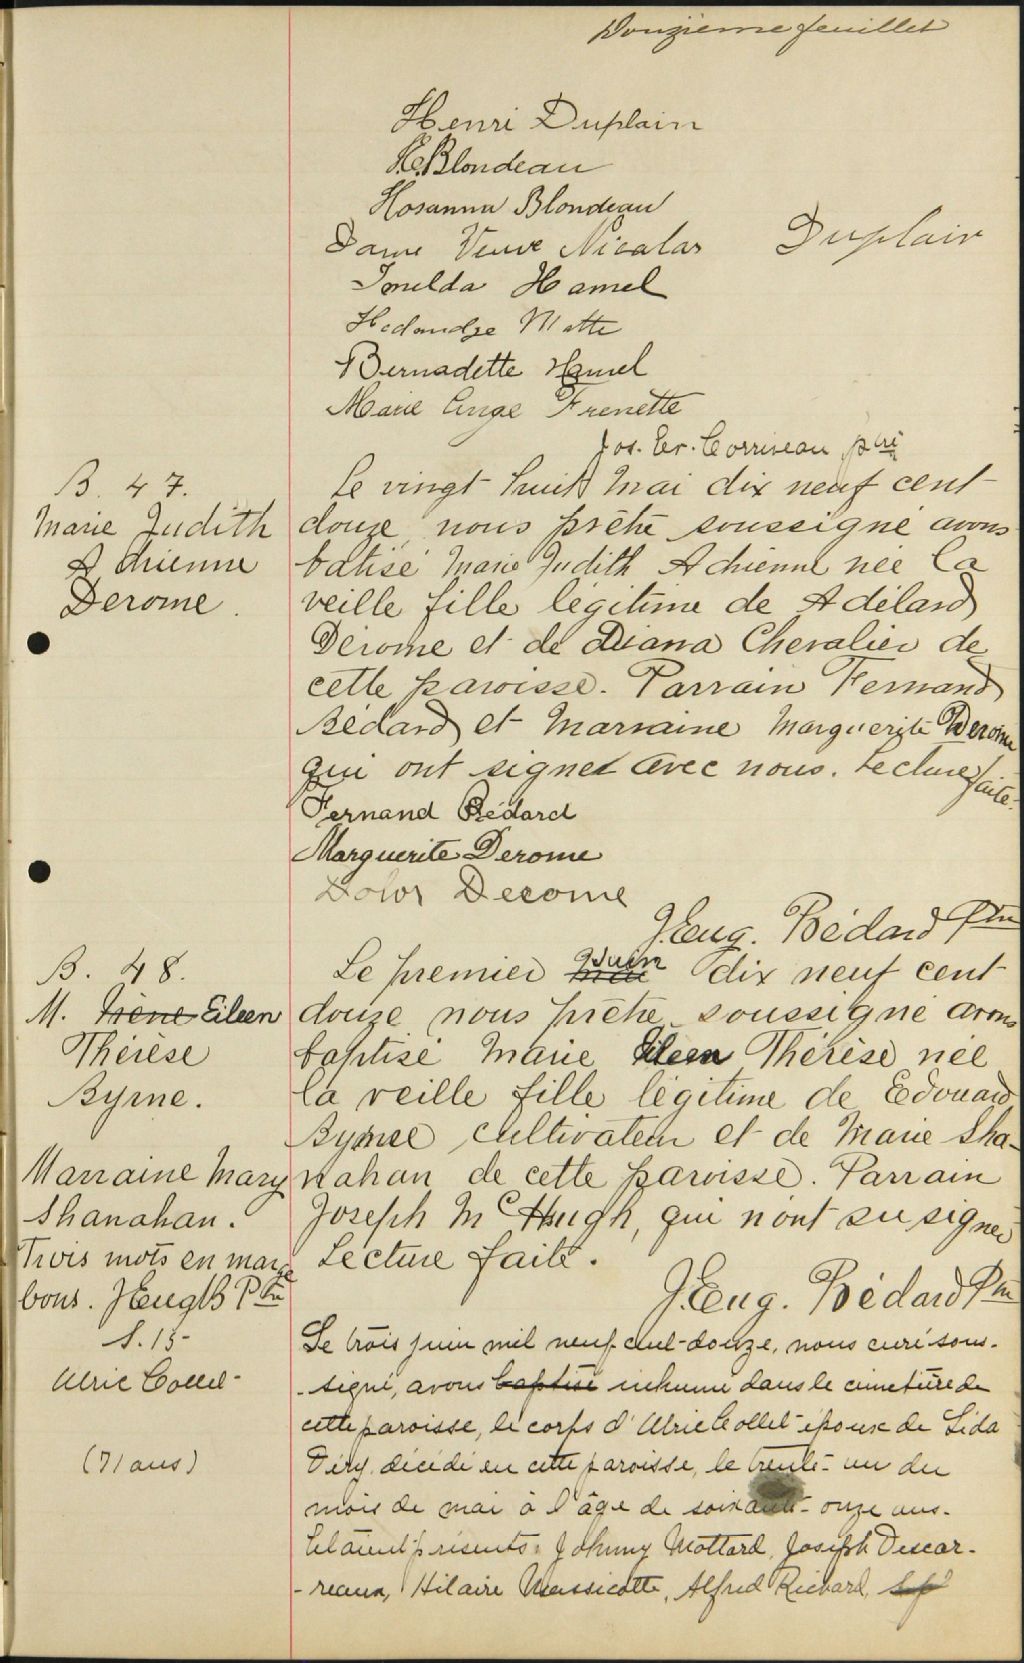 Douzième feuillet
Henri Duplain
H.C. Blondeau
Hosanna Blondeau
Dame Veuve Nicolas Duplain
Imelda Hamel
Matte
Bernadette Hamel
Marie Ange Frenette
Jos. Er. Corriveau ptre
B. 47.
Marie Judith
Adrienne
Derome.
Le vingt huit Mai dix neuf cent
douze, nous prêtre soussigné avons
batisé Marie Judith Adrienne née la
veille fille légitime de Adélard
Dérome et de Diana Chevalier de
cette paroisse. Parrain Fernand
Bédard et Marraine Marguerite Derome
qui ont signés avec nous. Lecture faite.
Fernand Bédard
Marguerite Derome
Dolor Derome
J. Eug. Bédard Ptre
B. 48.
M. Irène Eileen
Thérèse
Byrne.
Marraine Mary
Shanahan.
Trois mots en marge
bons. J Eug B Ptre
Le premier mai Juin dix neuf cent
douze nous prêtre soussigné avons
baptisé Marie Eileen Thérèse née
la veille fille légitime de Edouard
Byrne cultivateur et de Marie Sha-
nahan de cette paroisse. Parrain
Joseph Mc Hugh, qui n'ont su signer
Lecture faite.
J. Eug. Bédard Ptre
S. 15-
Ulric Collet-
(71 ans)
Le trois juin mil neuf-cent-douze, nous curé sous-
-signé, avons baptisé inhumé dans le cimetière de
cette paroisse, le corps d'Ulric Collet époux de Lida
Déry, décédé en cette paroisse, le trente-un du
mois de mai à l'âge de soixante-onze ans.
Etaient présents: Johnny Mottard, Joseph Descar-
-reaux, Hilaire Massicotte, Alfred Richard,